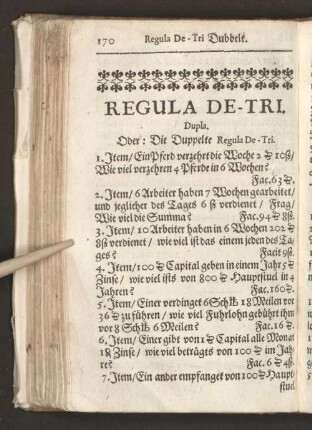 170 Regula De-Tri Dubbelt.
REGULA DE-TRI.
Dupla.
Oder: Die Duppelte Regula De-Tri.
1. Item/ Ein Pferd verzehrt die Woche 2 ℔ 10ß/
Wie viel verzehren 4 Pferde in 6 Wochen?
Fac. 63 ℔.
2. Item/ 6 Arbeiter haben 7 Wochen gearbeitet/
und jeglicher des Tages 6 ß verdienet / Frag/
Wie viel die Summa? Fac. 94 ℔ 8ß.
3. Item/ 10 Arbeiter haben in 6 Wochen 202 ℔
8ß verdienet / wie viel ist das einem jeden des Ta-
ges? Facit 9ß.
4. Item/ 100 ℔ Capital geben in einem Jahr 5 ℔
Zinse/ wie viel ists von 800 ℔ Hauptstuel in 4
Jahren? Fac. 160 ℔.
5. Item/ Einer verdingt 6 Sch℔ 18 Meilen vor
36 ℔ zu führen / wie viel Fuhrlohn gebührt ihm
vor 8 Sch℔ 6 Meilen? Fac. 16 ℔.
6. Item/ Einer gibt von 1 ℔ Capital alle Monat
Zinse / wie viel beträgts von 100 ℔ im Jah-
re? Fac. 6 ℔ 4ß.
7. Item/ Ein ander empfanget von 100 ℔ Haupt-
stuel